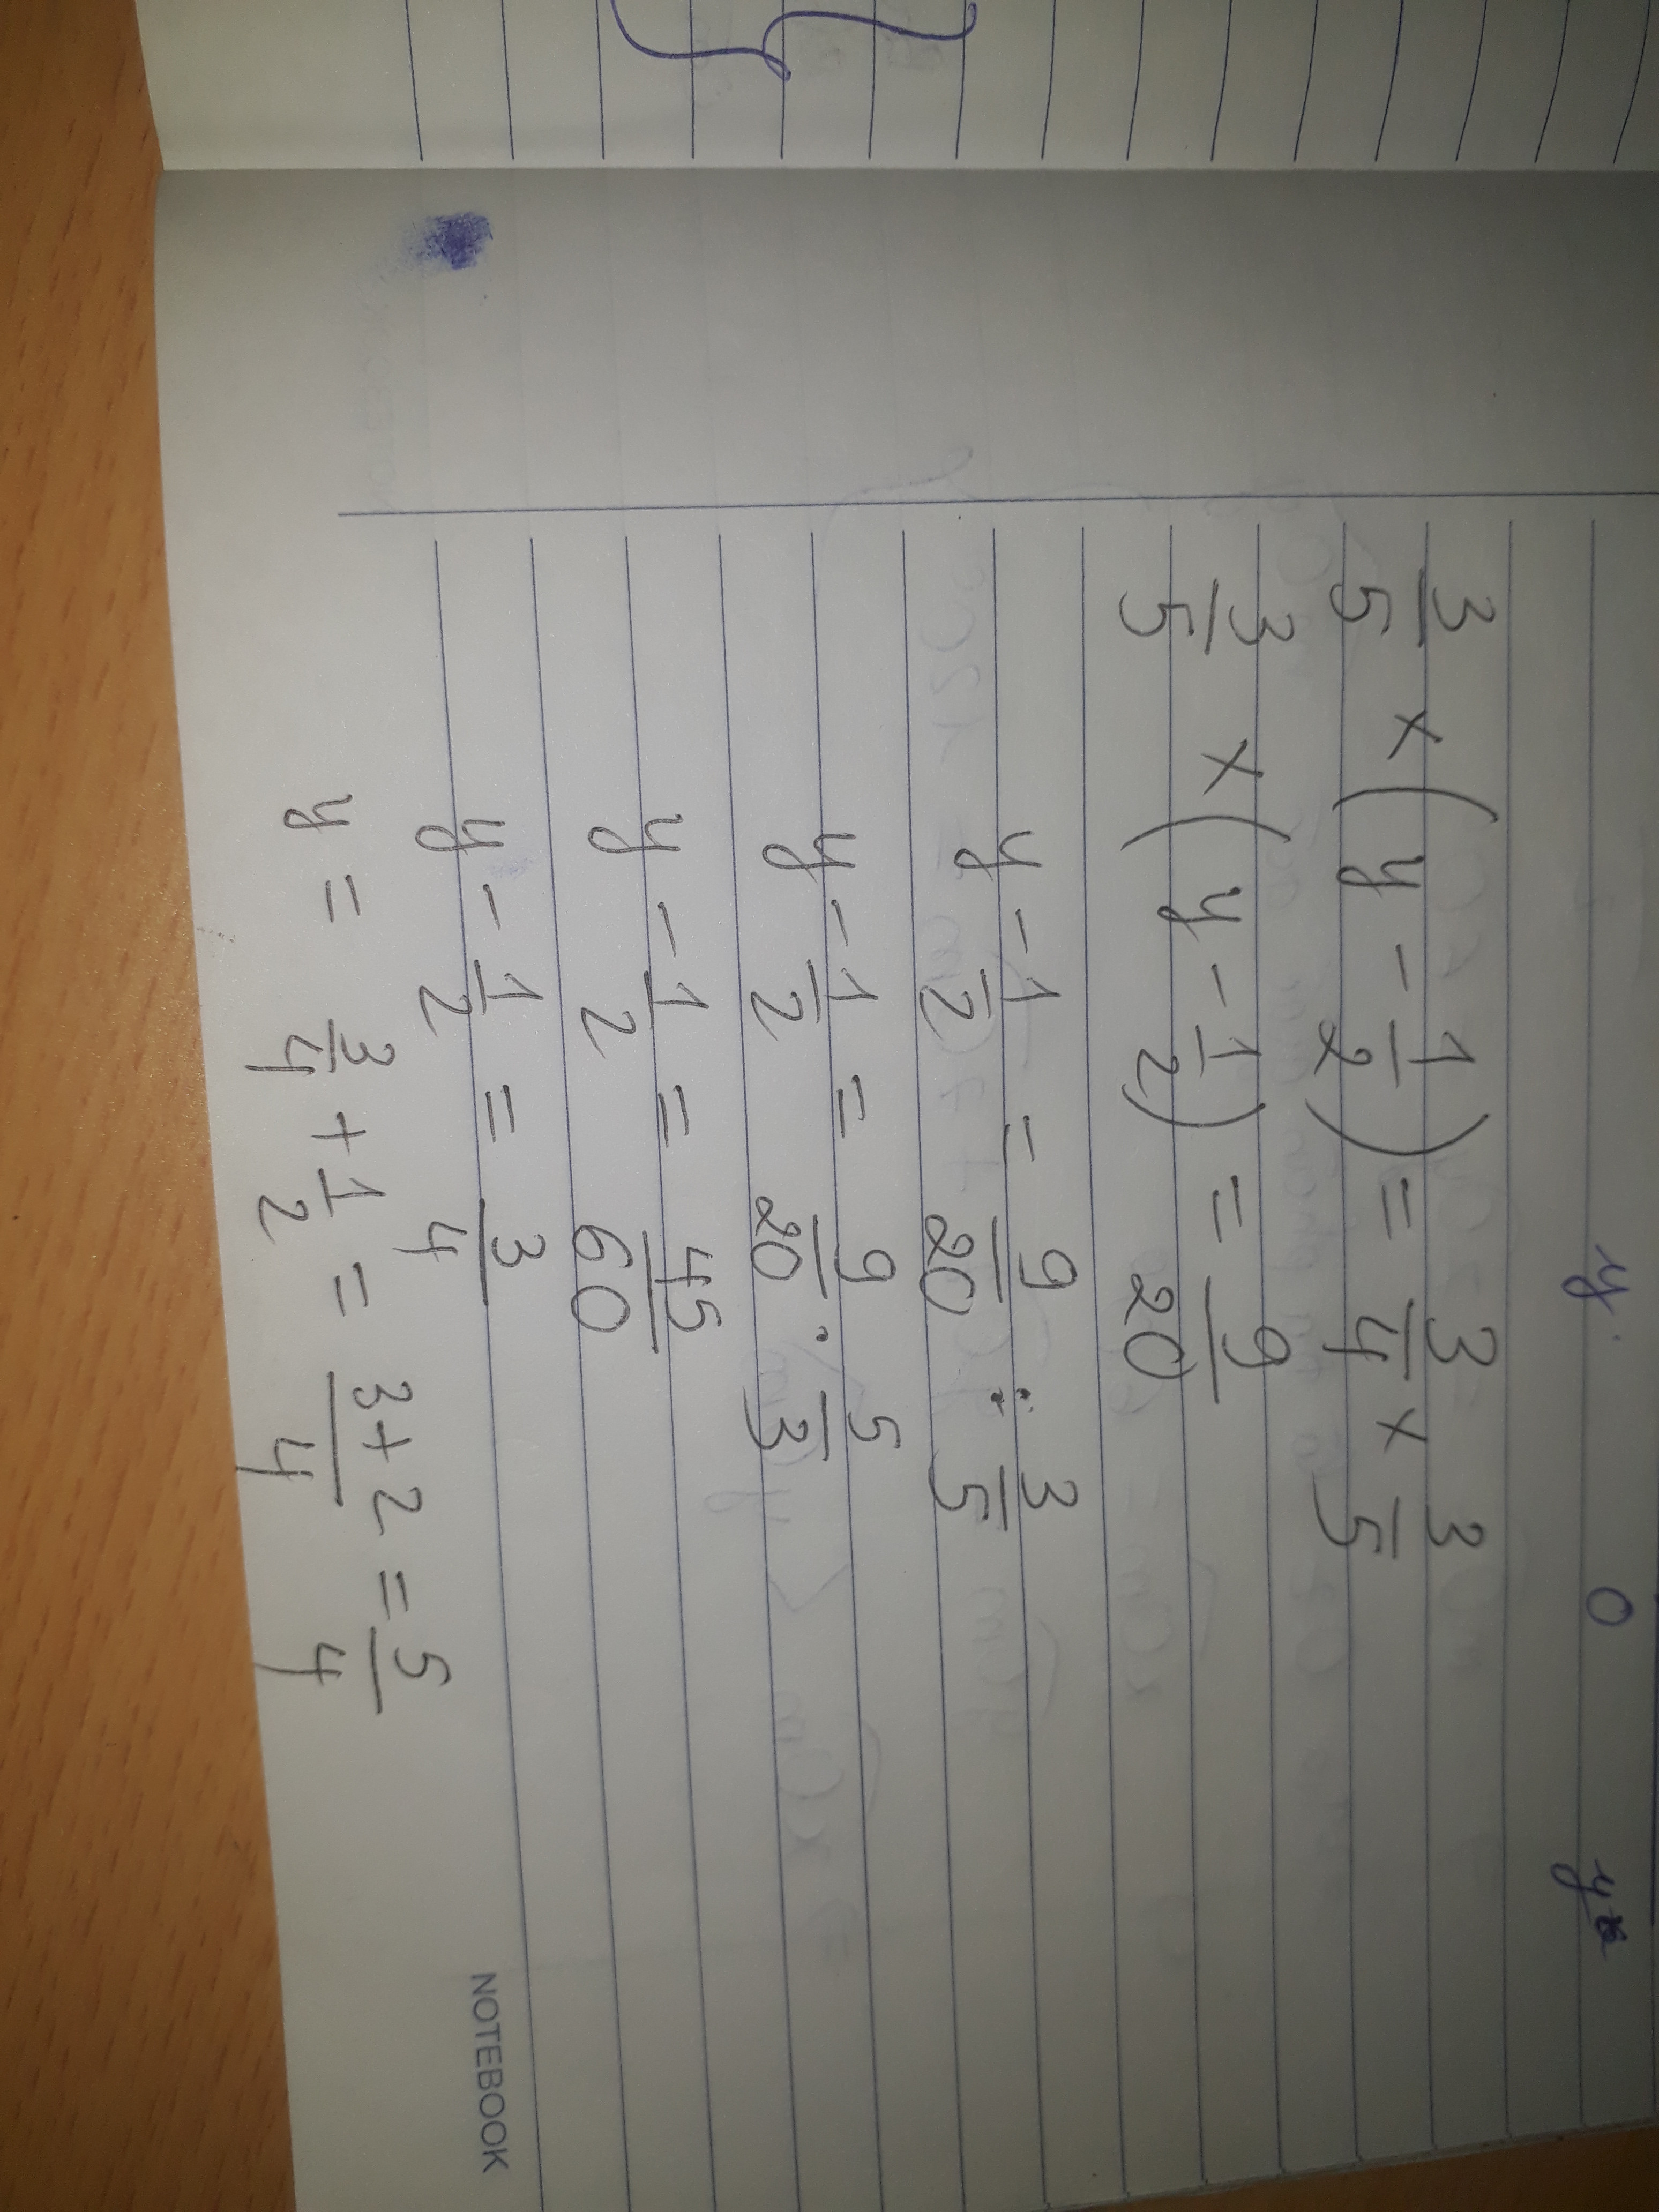 y. 0 y
3/5 × (y - 1/2) = 3/4 × 3/5
3/5 × (y - 1/2) = 9/20
y - 1/2 = 9/20 : 3/5
y - 1/2 = 9/20 . 5/3
y - 1/2 = 45/60
y - 1/2 = 3/4
y = 3/4 + 1/2 = 3+2/4 = 5/4
NOTEBOOK